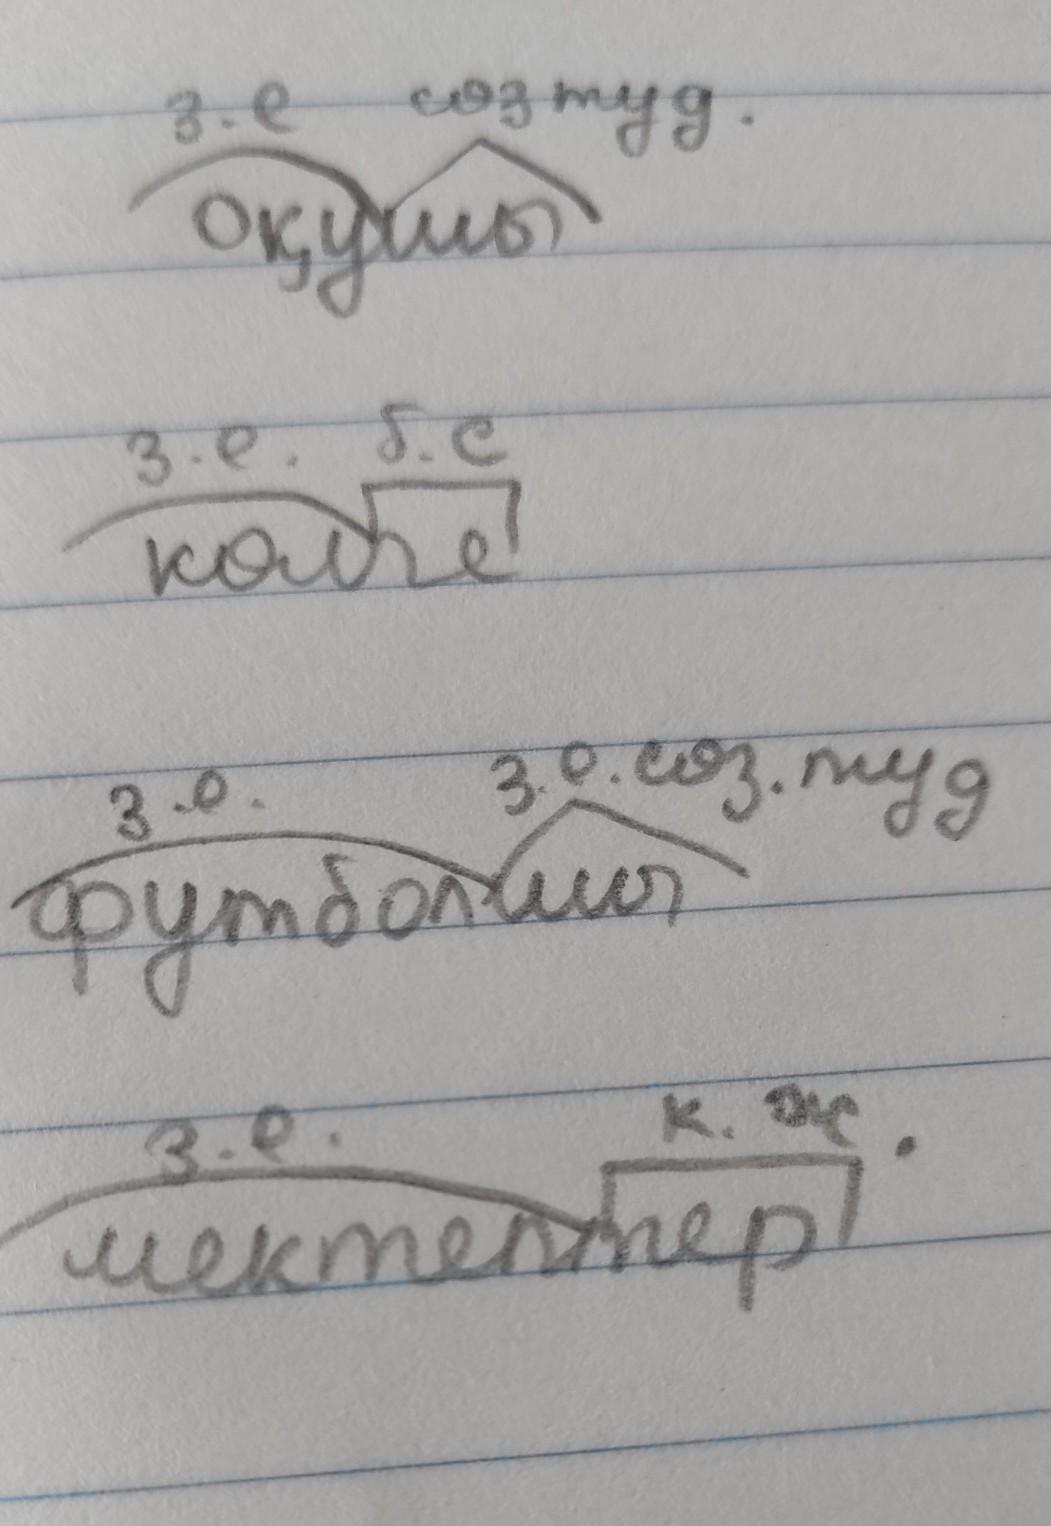 з.е созтуд.
оқушы
з.е. б.с
көлге
з.е. з.е.соз.туд
футболшы
з.е. к.ж.
мектептер